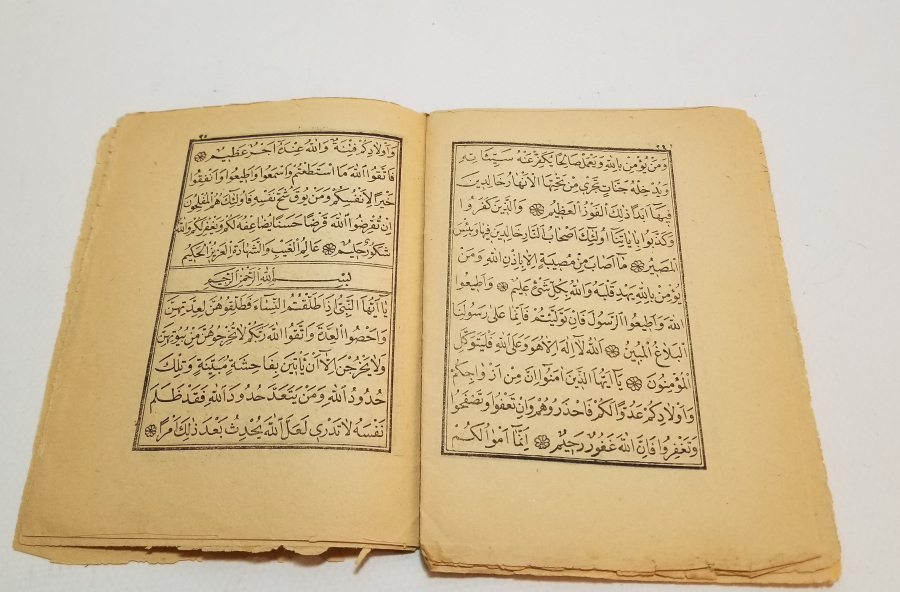 وَمَنْ يُؤْمِنْ بِاللّٰهِ وَيَعْمَلْ صَالِحًا يُكَفِّرْ عَنْهُ سَيِّئَاتِهِ
وَيُدْخِلْهُ جَنَّاتٍ تَجْرِي مِنْ تَحْتِهَا الْاَنْهَارُ خَالِدِينَ
فِيهَا اَبَدًا ذٰلِكَ الْفَوْزُ الْعَظِيمُ وَالَّذِينَ كَفَرُوا
وَكَذَّبُوا بِاٰيَاتِنَا اُولٰئِكَ اَصْحَابُ النَّارِ خَالِدِينَ فِيهَا وَبِئْسَ
الْمَصِيرُ مَا اَصَابَ مِنْ مُصِيبَةٍ اِلَّا بِاِذْنِ اللّٰهِ وَمَنْ
يُؤْمِنْ بِاللّٰهِ يَهْدِ قَلْبَهُ وَاللّٰهُ بِكُلِّ شَيْءٍ عَلِيمٌ وَاَطِيعُوا
اللّٰهَ وَاَطِيعُوا الرَّسُولَ فَاِنْ تَوَلَّيْتُمْ فَاِنَّمَا عَلٰى رَسُولِنَا
الْبَلَاغُ الْمُبِينُ اَللّٰهُ لَا اِلٰهَ اِلَّا هُوَ وَعَلَى اللّٰهِ فَلْيَتَوَكَّلِ
الْمُؤْمِنُونَ يَا اَيُّهَا الَّذِينَ اٰمَنُوا اِنَّ مِنْ اَزْوَاجِكُمْ
وَاَوْلَادِكُمْ عَدُوًّا لَكُمْ فَاحْذَرُوهُمْ وَاِنْ تَعْفُوا وَتَصْفَحُوا
وَتَغْفِرُوا فَاِنَّ اللّٰهَ غَفُورٌ رَحِيمٌ اِنَّمَا اَمْوَالُكُمْ
وَاَوْلَادُكُمْ فِتْنَةٌ وَاللّٰهُ عِنْدَهُ اَجْرٌ عَظِيمٌ
فَاتَّقُوا اللّٰهَ مَا اسْتَطَعْتُمْ وَاسْمَعُوا وَاَطِيعُوا وَاَنْفِقُوا
خَيْرًا لِاَنْفُسِكُمْ وَمَنْ يُوقَ شُحَّ نَفْسِهِ فَاُولٰئِكَ هُمُ الْمُفْلِحُونَ
اِنْ تُقْرِضُوا اللّٰهَ قَرْضًا حَسَنًا يُضَاعِفْهُ لَكُمْ وَيَغْفِرْ لَكُمْ وَاللّٰهُ
شَكُورٌ حَلِيمٌ عَالِمُ الْغَيْبِ وَالشَّهَادَةِ الْعَزِيزُ الْحَكِيمُ
بِسْمِ اللّٰهِ الرَّحْمٰنِ الرَّحِيمِ
يَا اَيُّهَا النَّبِيُّ اِذَا طَلَّقْتُمُ النِّسَاءَ فَطَلِّقُوهُنَّ لِعِدَّتِهِنَّ
وَاَحْصُوا الْعِدَّةَ وَاتَّقُوا اللّٰهَ رَبَّكُمْ لَا تُخْرِجُوهُنَّ مِنْ بُيُوتِهِنَّ
وَلَا يَخْرُجْنَ اِلَّا اَنْ يَأْتِينَ بِفَاحِشَةٍ مُبَيِّنَةٍ وَتِلْكَ
حُدُودُ اللّٰهِ وَمَنْ يَتَعَدَّ حُدُودَ اللّٰهِ فَقَدْ ظَلَمَ
نَفْسَهُ لَا تَدْرِي لَعَلَّ اللّٰهَ يُحْدِثُ بَعْدَ ذٰلِكَ اَمْرًا